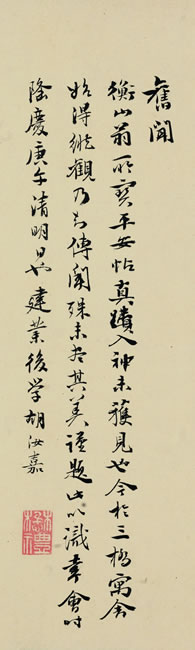 舊聞
衡山翁所寶平安帖真蹟入神未獲見也今於三橋寓舍
始得縱觀乃知傳聞殊未盡其美謹題此以識幸會時
隆慶庚午清明日也建業後學胡汝嘉